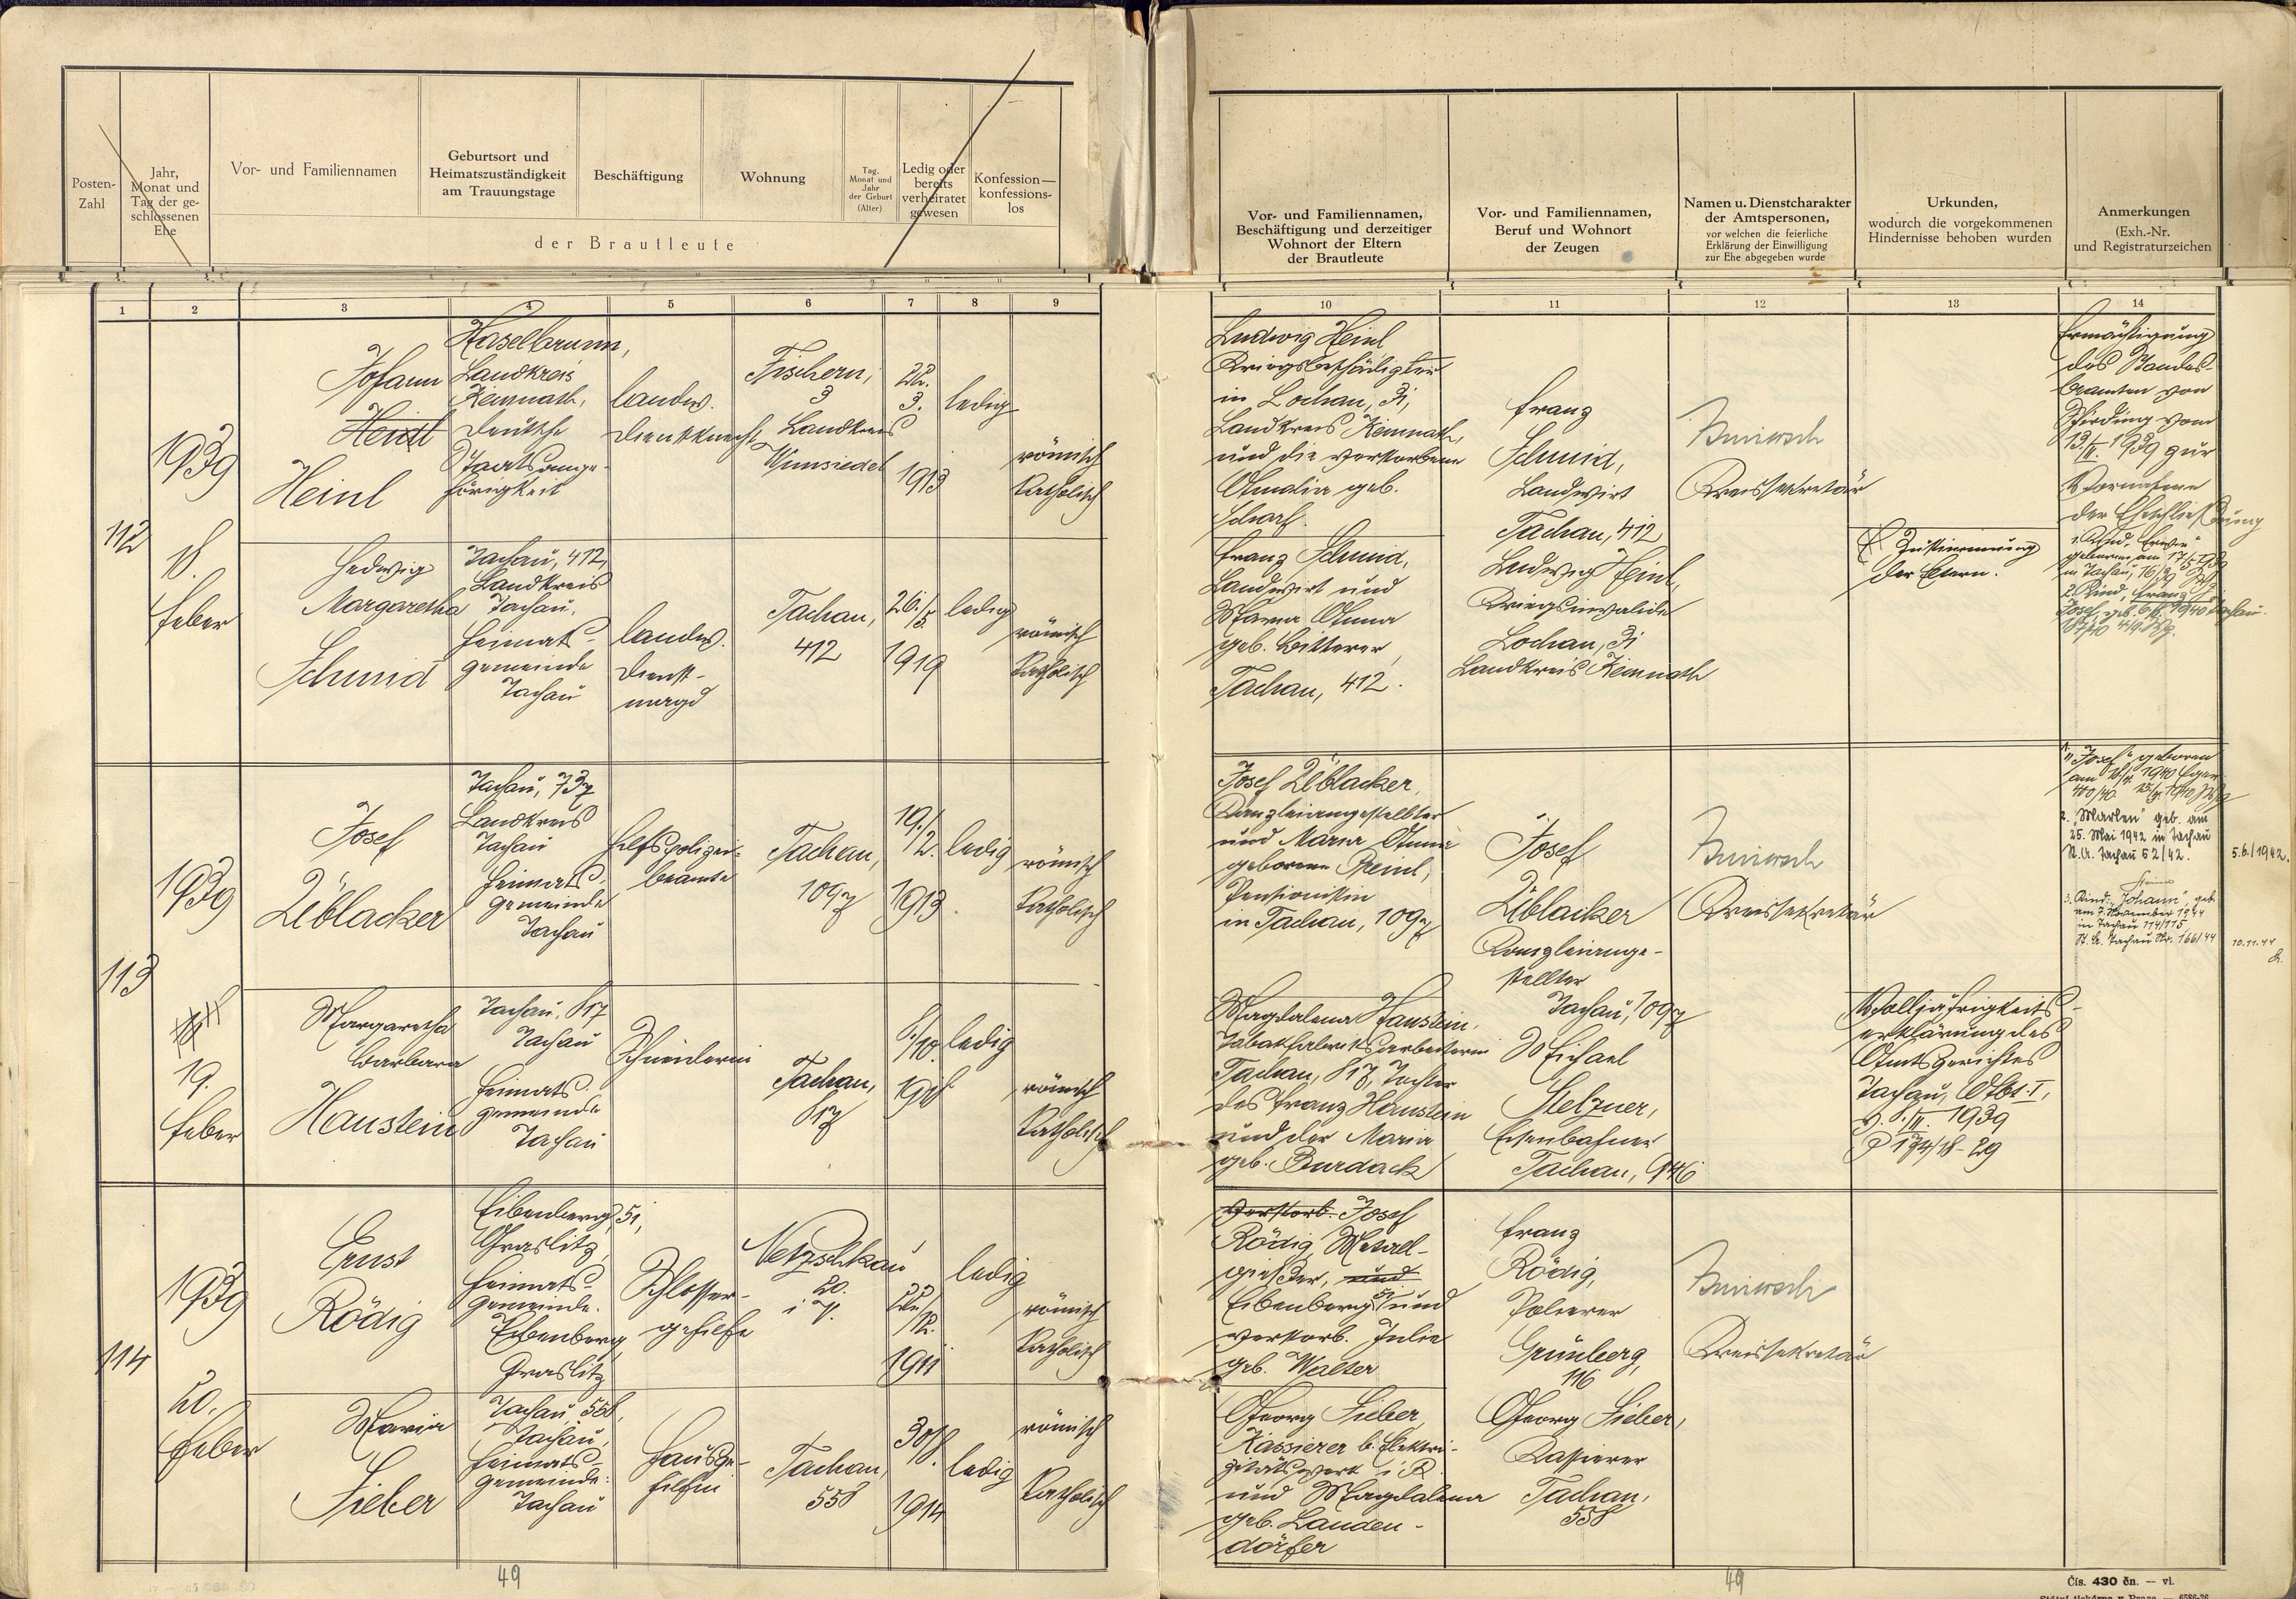 Posten-
Zahl
Jahr,
Monat und
Tag der ge-
schlossenen
Ehe
Vor- und Familiennamen
Geburtsort und
Heimatszuständigkeit
am Trauungstage
Beschäftigung
Wohnung
Tag,
Monat und
Jahr
der Geburt
(Alter)
Ledig oder
bereits
verheiratet
gewesen
Konfession—
konfessions-
los
der Brautleute
Vor- und Familiennamen,
Beschäftigung und derzeitiger
Wohnort der Eltern
der Brautleute
Vor- und Familiennamen,
Beruf und Wohnort
der Zeugen
Namen u. Dienstcharakter
der Amtspersonen,
vor welchen die feierliche
Erklärung der Einwilligung
zur Ehe abgegeben wurde
Urkunden,
wodurch die vorgekommenen
Hindernisse behoben wurden
Anmerkungen
(Exh.-Nr.
und Registraturzeichen
1
2
3
4
5
6
7
8
9
10
11
12
13
14
112
1939
18.
Feber
Johann
Heinl
Haselbrunn,
Landkreis
Kemnath,
Deutsche
Staatsange-
hörigkeit
landw.
Dienstknecht
Fischern,
3
Landkreis
Wunsiedel
22.
3.
1913
ledig
römisch
katholisch
Ludwig Heinl
Kriegsbeschädigter
in Lochau, 3i,
Landkreis Kemnath,
und die verstorbene
Amalia geb.
Scharf.
Franz
Schmid,
Landwirt
Tachau, 412
Kreissekretär
Ermächtigung
des Standes-
beamten von
vom
13./II. 1939 zur
Vornahme
der Eheschließung
Hedwig
Margaretha
Schmid
Tachau, 412,
Landkreis
Tachau,
Heimats-
gemeinde
Tachau
landw.
Dienst-
magd
Tachau,
412
26./
5.
1919
ledig
römisch
katholisch
Franz Schmid,
Landwirt und
Maria Anna
geb. Bitterer,
Tachau, 412.
Ludwig Heinl,
Kriegsinvalide
Lochau, 3i
Landkreis Kemnath
Zustimmung
der Eltern.
1. Kind "Erwin"
geboren am 17/5 1939
in Tachau,
2. Kind, Franz
Josef, geb.
113
1939
19.
Feber
Josef
Üblacker
Tachau, 737
Landkreis
Tachau
Heimats-
gemeinde
Tachau
Hilfspolizei-
beamte
Tachau,
1097
19./
12.
1913.
ledig
römisch
katholisch
Josef Üblacker,
Kanzleiangestellter
und Maria Anna
geborene Heinl,
Pensionistin
in Tachau, 1097
Josef
Üblacker
Kanzleiange-
stellter
Tachau, 1097
Kreissekretär
1. "Josef" geboren
1940 Eger
2. "Marlen" geb. am
25. Mai 1942 in Tachau
St.A. Tachau 52/42.
5.6./1942.
3. Kind: "Johann", geb.
am 7. November 1944
in Tachau 114/115
St. A. Tachau Nr. 166/44
10.11.44
Margaretha
Barbara
Haustein
Tachau, 817
Tachau
Heimats-
gemeinde
Tachau
Schneiderin
Tachau,
817
8./10.
1918
ledig
römisch
katholisch
Magdalena Haustein,
Tabakfabriksarbeiterin
Tachau, 817, Tochter
des Franz Haustein
und der Maria
geb. Burdack
Michael
Stelzner,
Eisenbahner
Tachau, 946
Volljährigkeits-
erklärung des
Amtsgerichtes
Tachau, Abt. I,
v. 8./II. 1939
P 174/18-29
114
1939
20.
Feber
Ernst
Rödig
Eibenberg, 51,
Graslitz,
Heimats-
gemeinde.
Eibenberg
Graslitz
Schlosser-
gehilfe
Netzschkau
20.
i V.
22./
12.
1911
ledig
römisch
katholisch
verstorb. Josef
Rödig, Metall-
gießer, und
Eibenberg 51 und
verstorb. Julie
geb. Walter
Franz
Rödig,
Polierer
Grünberg,
116
Kreissekretär
Maria
Sieber
Tachau, 558,
Tachau,
Heimats-
gemeinde:
Tachau
Hausge-
hilfin
Tachau,
558
30./
8.
1914
ledig
römisch
katholisch
Georg Sieber,
Kassierer b. Elektri-
zitätswerk i R
und Magdalena
geb. Lauden-
dörfer
Georg Sieber,
Kassierer
Tachau,
558
49
49
Čís. 430 čn. — vl.
Státní tiskárna v Praze. — 6586-36